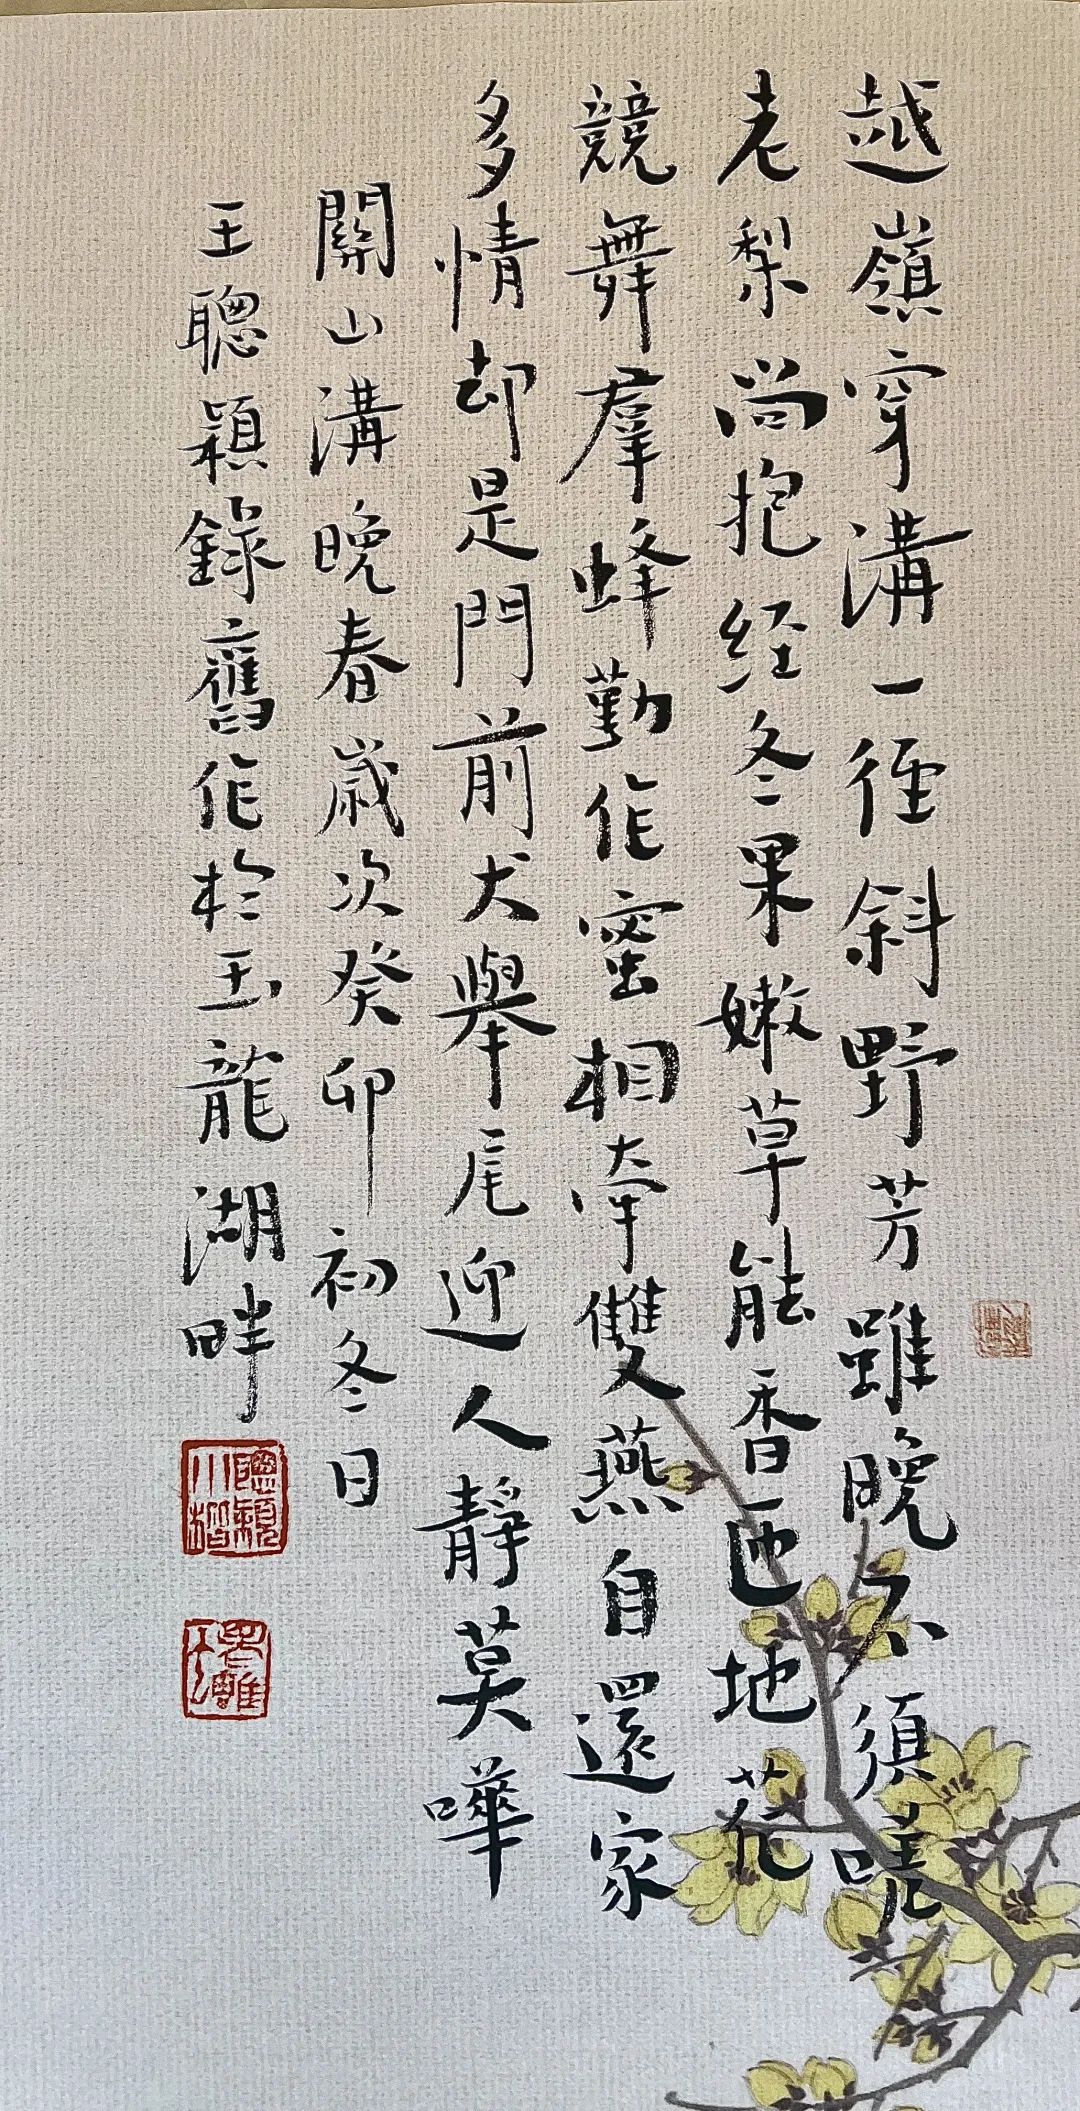 越嶺穿溝一徑斜野芳雖晚不須嗟
老梨尚抱经冬果嫩草能香匝地花
競舞羣蜂勤作蜜相牽雙燕自還家
多情却是門前犬舉尾迎人靜莫嘩
關山溝晚春歲次癸卯初冬日
王聰穎錄舊作於玉龍湖畔